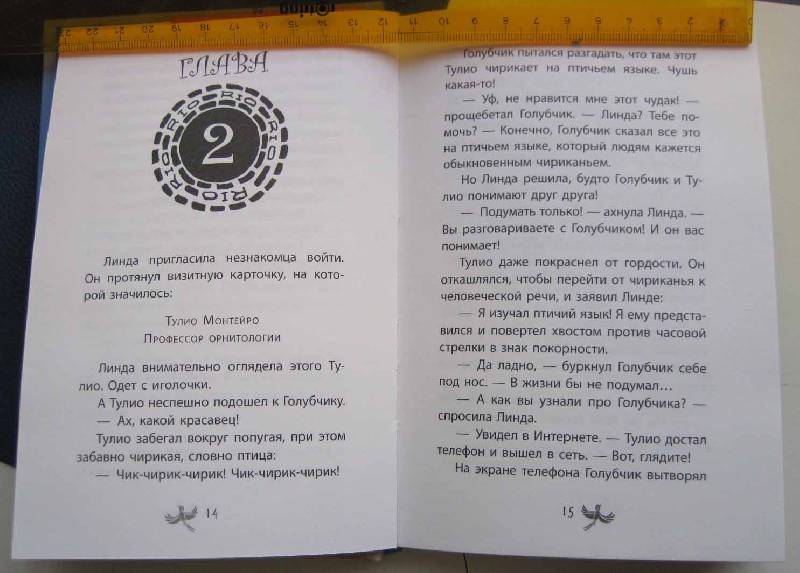 23 22 21 20 19 18 17 16 15 14 13 12 11 10 9 8 7 6 5 4 3 2 1 0
ГЛАВА
RIO RIO RIO RIO RIO RIO
2
Линда пригласила незнакомца войти.
Он протянул визитную карточку, на кото-
рой значилось:
Тулио Монтейро
Профессор орнитологии
Линда внимательно оглядела этого Ту-
лио. Одет с иголочки.
А Тулио неспешно подошел к Голубчику.
— Ах, какой красавец!
Тулио забегал вокруг попугая, при этом
забавно чирикая, словно птица:
— Чик-чирик-чирик! Чик-чирик-чирик!
14
Голубчик пытался разгадать, что там этот
Тулио чирикает на птичьем языке. Чушь
какая-то!
— Уф, не нравится мне этот чудак! —
прощебетал Голубчик. — Линда? Тебе по-
мочь? — Конечно, Голубчик сказал все это
на птичьем языке, который людям кажется
обыкновенным чириканьем.
Но Линда решила, будто Голубчик и Ту-
лио понимают друг друга!
— Подумать только! — ахнула Линда. —
Вы разговариваете с Голубчиком! И он вас
понимает!
Тулио даже покраснел от гордости. Он
откашлялся, чтобы перейти от чириканья к
человеческой речи, и заявил Линде:
— Я изучал птичий язык! Я ему предста-
вился и повертел хвостом против часовой
стрелки в знак покорности.
— Да ладно, — буркнул Голубчик себе
под нос. — В жизни бы не подумал...
— А как вы узнали про Голубчика? —
спросила Линда.
— Увидел в Интернете. — Тулио достал
телефон и вышел в сеть. — Вот, глядите!
На экране телефона Голубчик вытворял
15